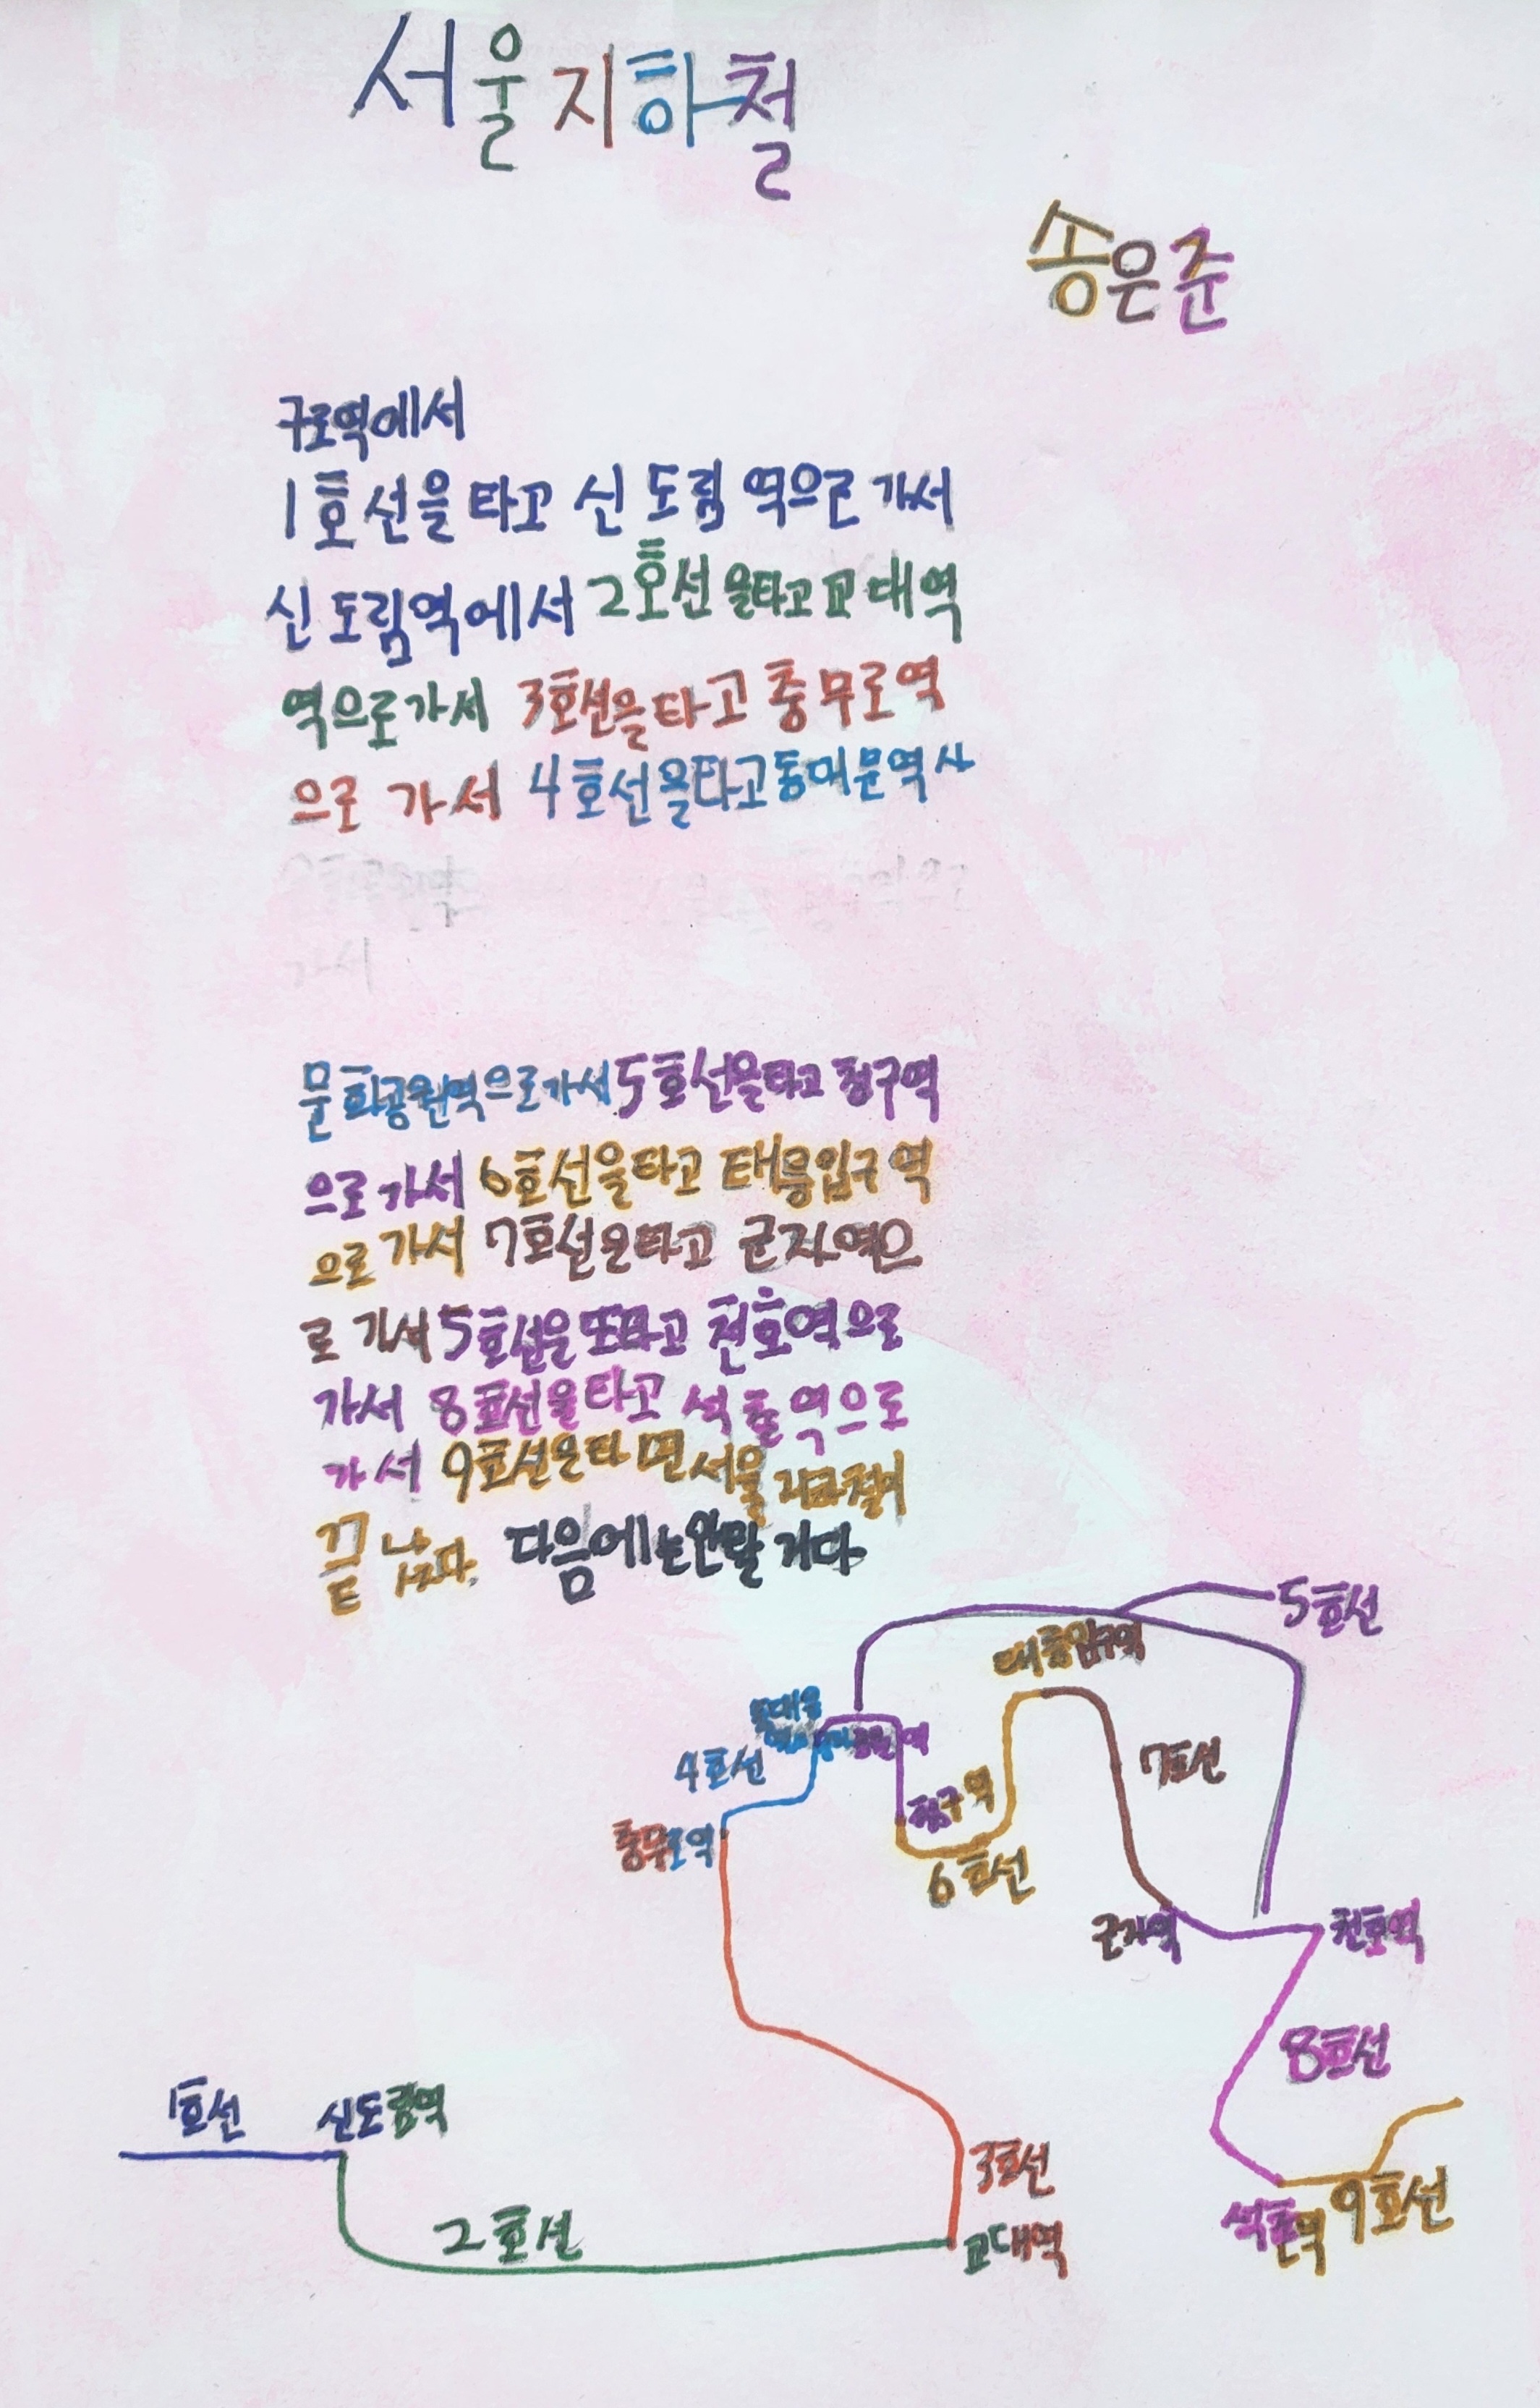 서울지하철
송은준
구로역에서
1호선을 타고 신도림 역으로 가서
신도림역에서 2호선을타고 교대역
역으로가서 3호선을타고 충무로역
으로 가서 4호선을타고동대문역사
문화공원역으로가서5호선을타고 청구역
으로가서 6호선을타고 태릉입구역
으로가서 7호선을타고 군자역으
로 가서 5호선을또타고 천호역으로
가서 8호선을타고 석촌역으로
가서 9호선을타면서울지하철이
끝난다. 다음에는안탈거다
5호선
태릉입구역
동대문
역사문화공원역
4호선
7호선
청구역
충무로역
6호선
군자역
천호역
8호선
1호선
신도림역
3호선
2호선
교대역
석촌역
9호선